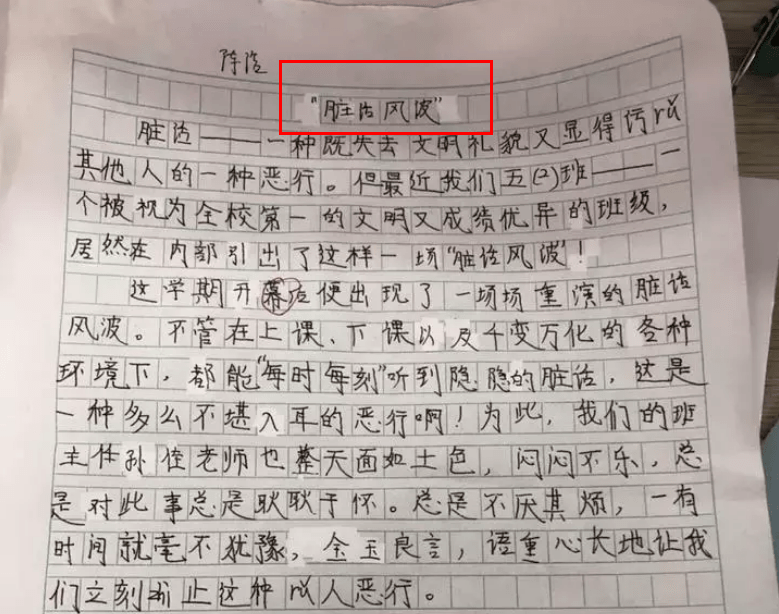 陈洁
“脏话风波”
脏话——一种既失去文明礼貌又显得污rǔ
其他人的一种恶行。但最近我们五(2)班——一
个被视为全校第一的文明又成绩优异的班级，
居然在内部引出了这样一场“脏话风波”！
这学期开幕后便出现了一场场重演的脏话
风波。不管在上课、下课以及千变万化的各种
环境下，都能“每时每刻”听到隐隐的脏话，这是
一种多么不堪入耳的恶行啊！为此，我们的班
主任孙佳老师也整天面如土色，闷闷不乐，总
是对此事总是耿耿于怀。总是不厌其烦，一有
时间就毫不犹豫，金玉良言，语重心长地让我
们立刻停止这种rǔ人恶行。